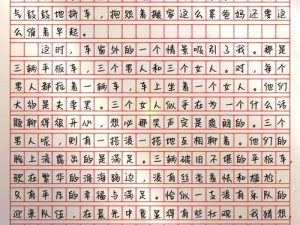 气鼓鼓地骑车，抱怨着搬家这么累爸妈还要这
么催着早起。
这时，车窗外的一个情景吸引了我。那是
三辆平板车，三个男人和三个女人。对，每个
男人都拖着一辆车，车上坐着一个女人。他们
大约是夫妻罢。三个女人似乎在为一个什么话
题聊得很开心，想必那笑声定是爽朗的。三个
男人呢，则有一搭没一搭地互相聊着。他们的
脸上流露出的是满足。三辆破旧不堪的平板车，
驶在繁华的淮海路边，没有丝毫羞怯和尴尬，
只有平凡的幸福与满足。恰似一支浪有乐队的
迎亲队伍，在晨光中竟显得有些壮观。我猜想，